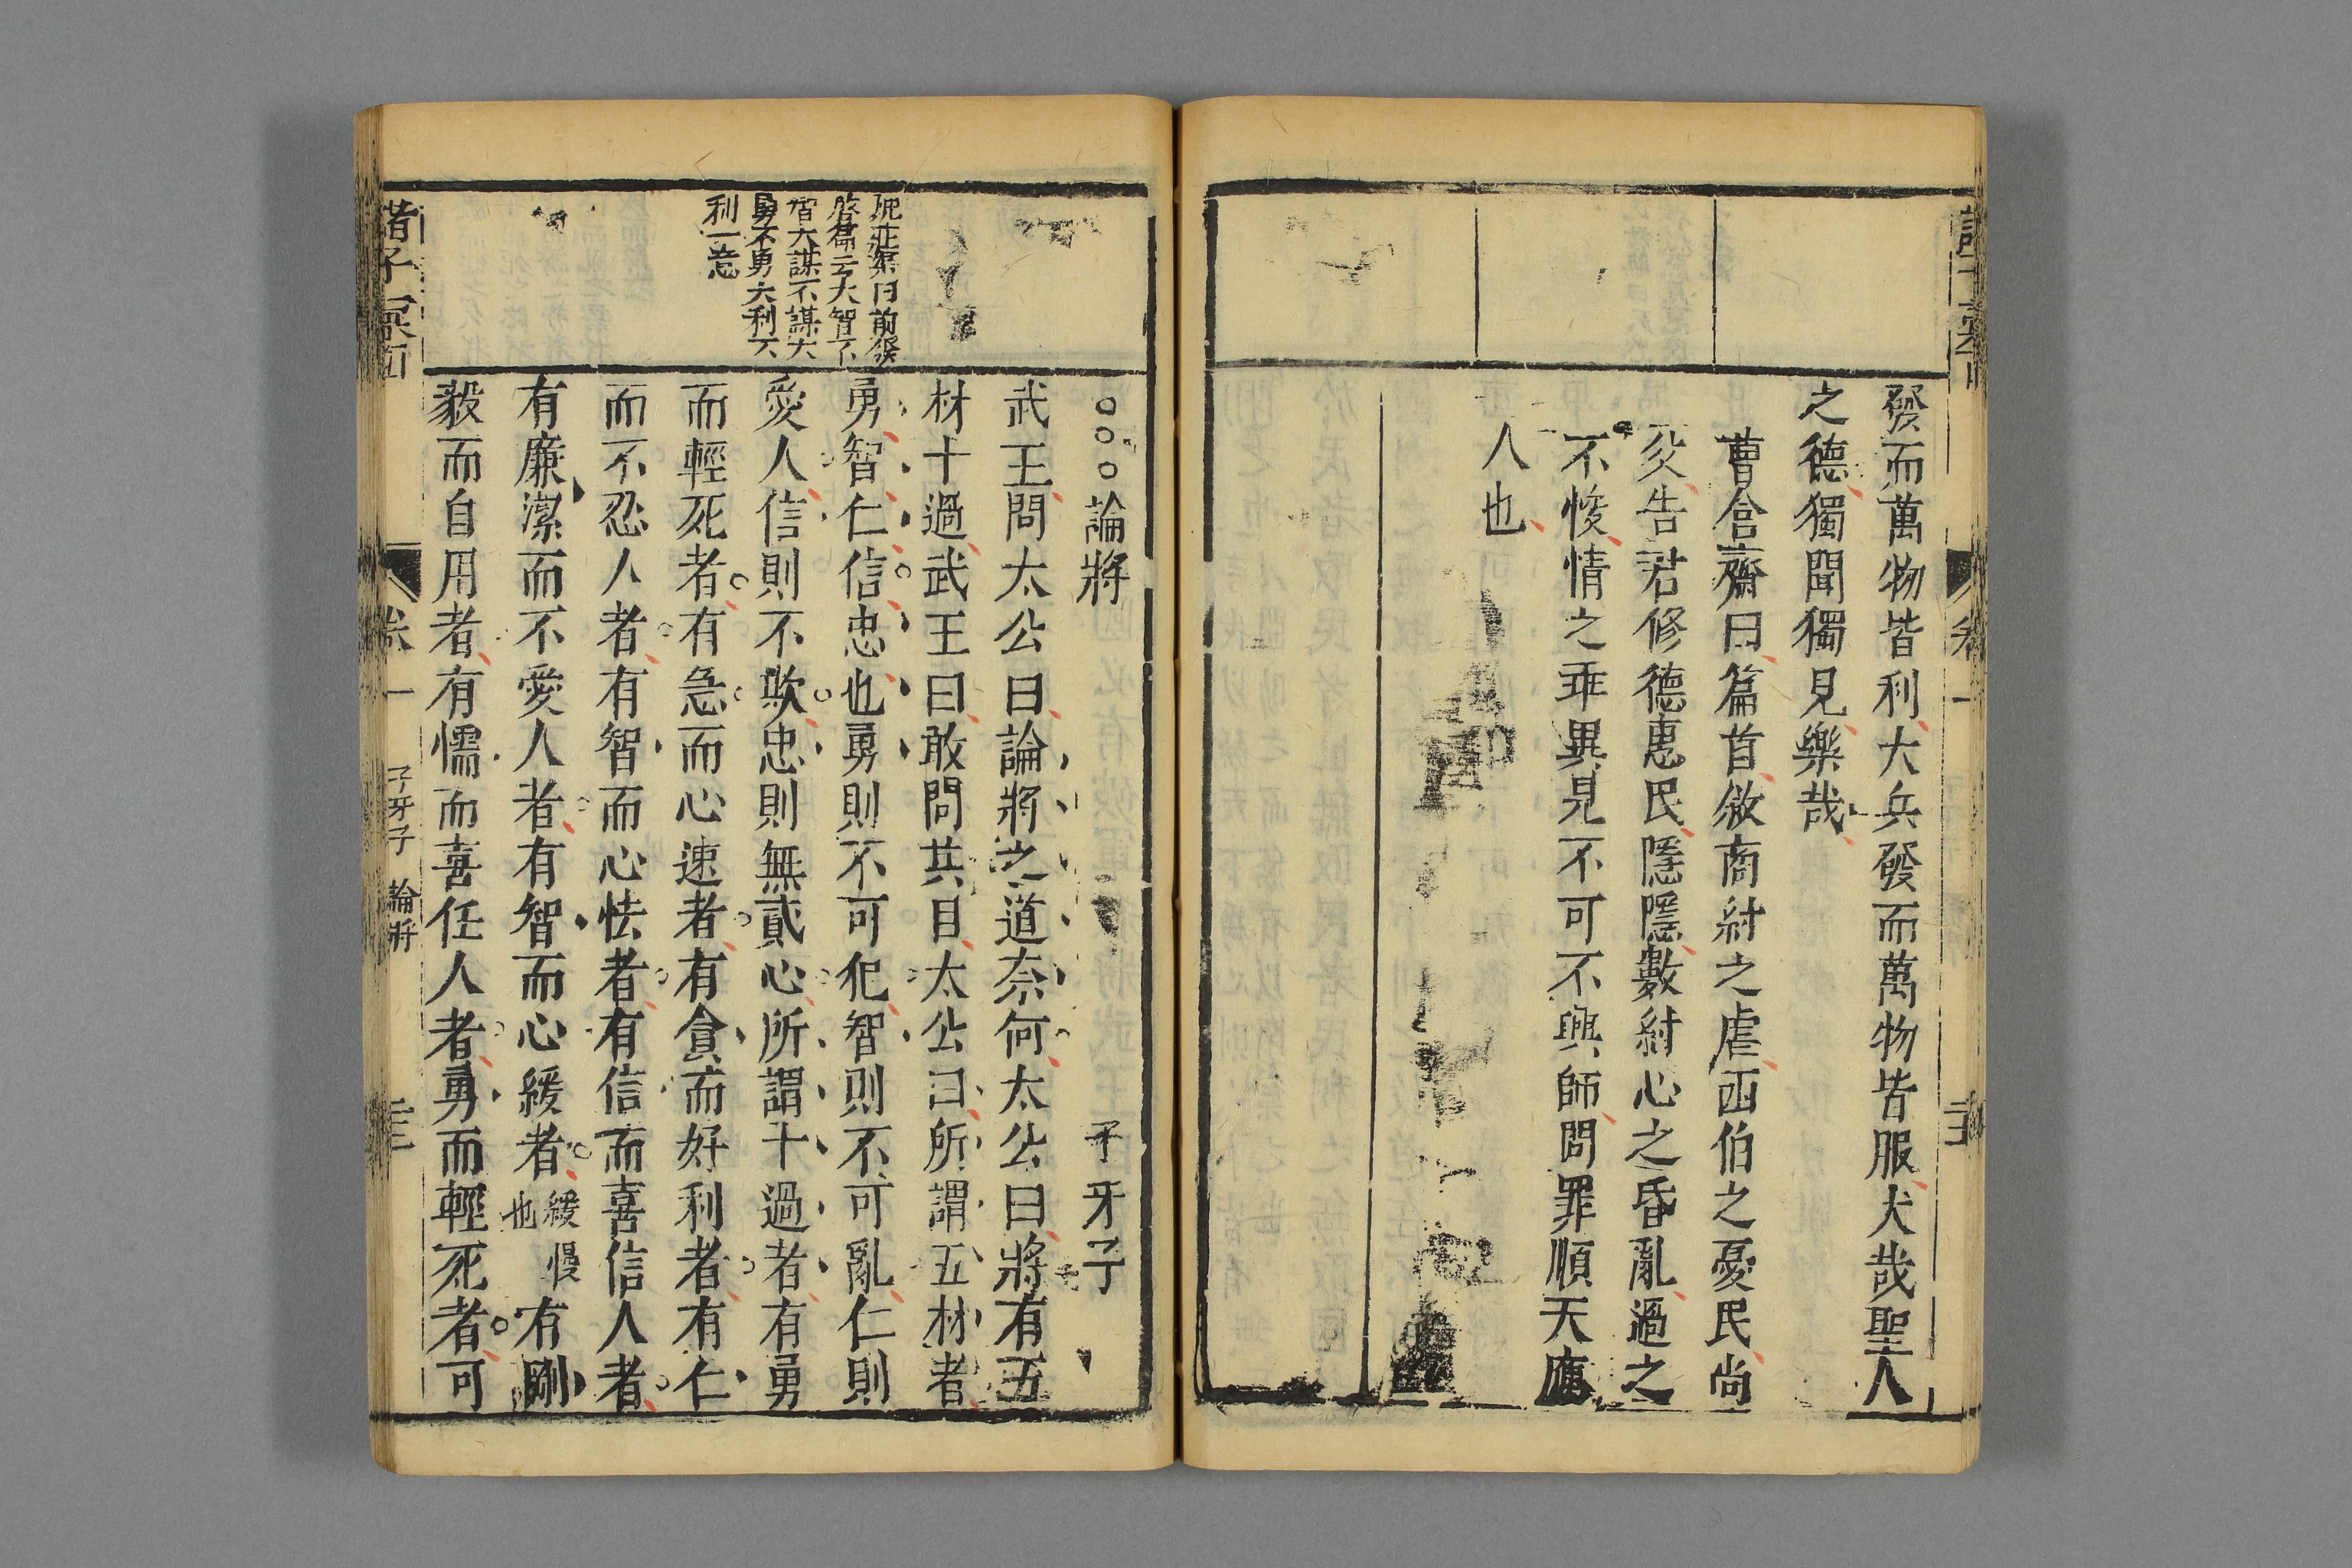 發而萬物皆利大兵發而萬物皆服大哉聖人
之德獨聞獨見樂哉
曹含齋曰篇首敘商紂之虐西伯之憂民尚
父告君修德惠民隱隱數紂心之昏亂過之
不悛情之乖異見不可不興師問罪順天應
人也
○○○論將 子牙子
武王問太公曰論將之道奈何太公曰將有五
材十過武王曰敢問其目太公曰所謂五材者
勇智仁信忠也勇則不可犯智則不可亂仁則
愛人信則不欺忠則無貳心所謂十過者有勇
而輕死者有急而心速者有貪而好利者有仁
而不忍人者有智而心怯者有信而喜信人者
有廉潔而不愛人者有智而心緩者緩慢也有剛
毅而自用者有懦而喜任人者勇而輕死者可
曰前發
啓篇云大智不
智大謀不謀大
勇不勇大利不
利一意
卷一 子牙子 論將